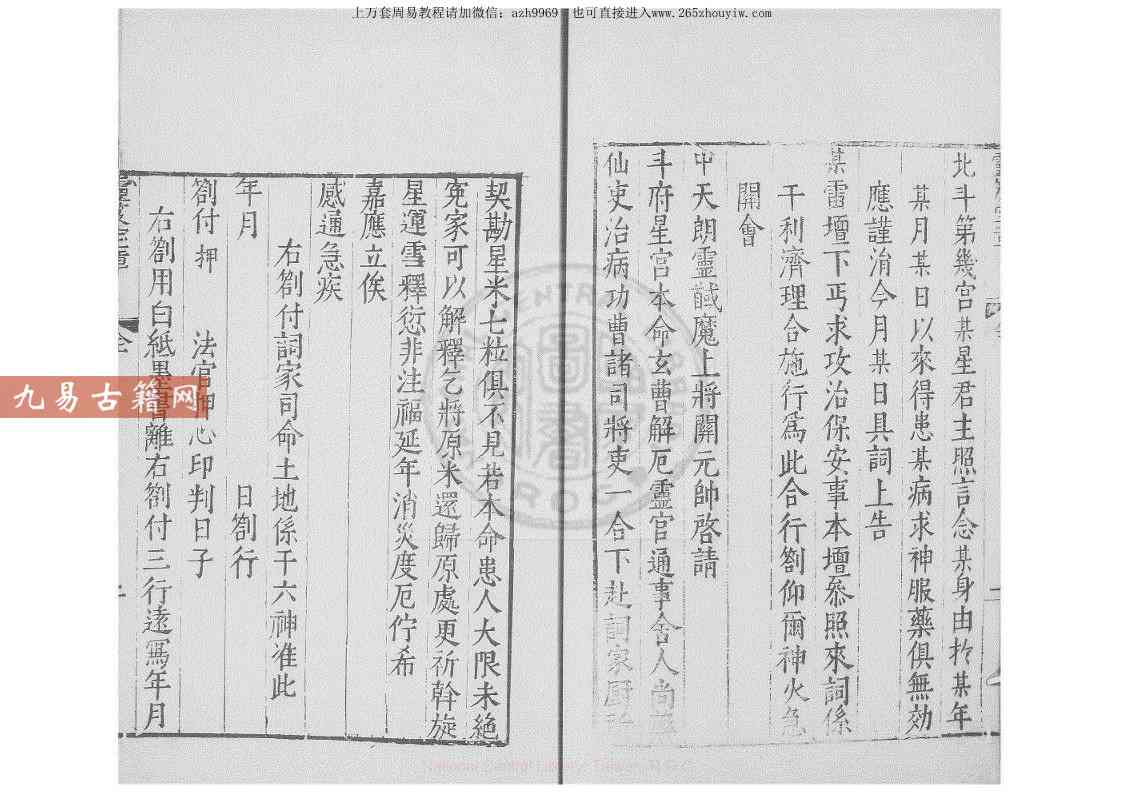 上万套周易教程请加微信：azh9969 也可直接进入www.265zhouyiw.com
北斗第幾宮某星君主照言念某身由扵某年
某月某日以來得患某病求神服藥俱無効
應謹涓今月某日具詞上告
某雷壇下丐求攻治保安事本壇叅照來詞係
干利濟理合施行爲此合行劄仰爾神火急
關會
中天朗靈馘魔上將關元帥啓請
斗府星宮本命玄曹解厄靈官通事舍人尚
仙吏治病功曹諸司將吏一合下赴詞家厨
契勘星米七粒俱不見若本命患人大限未絶
寃家可以解釋乞將原米還歸原處更祈斡旋
星運雪釋愆非注福延年消災度厄佇希
嘉應立俟
感通急疾
右劄付詞家司命土地係干六神准此
年月 日劄行
劄付押 法官押心印判日子
右劄用白紙墨書離右劄付三行遠寫年月
九易古籍网
National Central Library, Taiwan, R.O.C